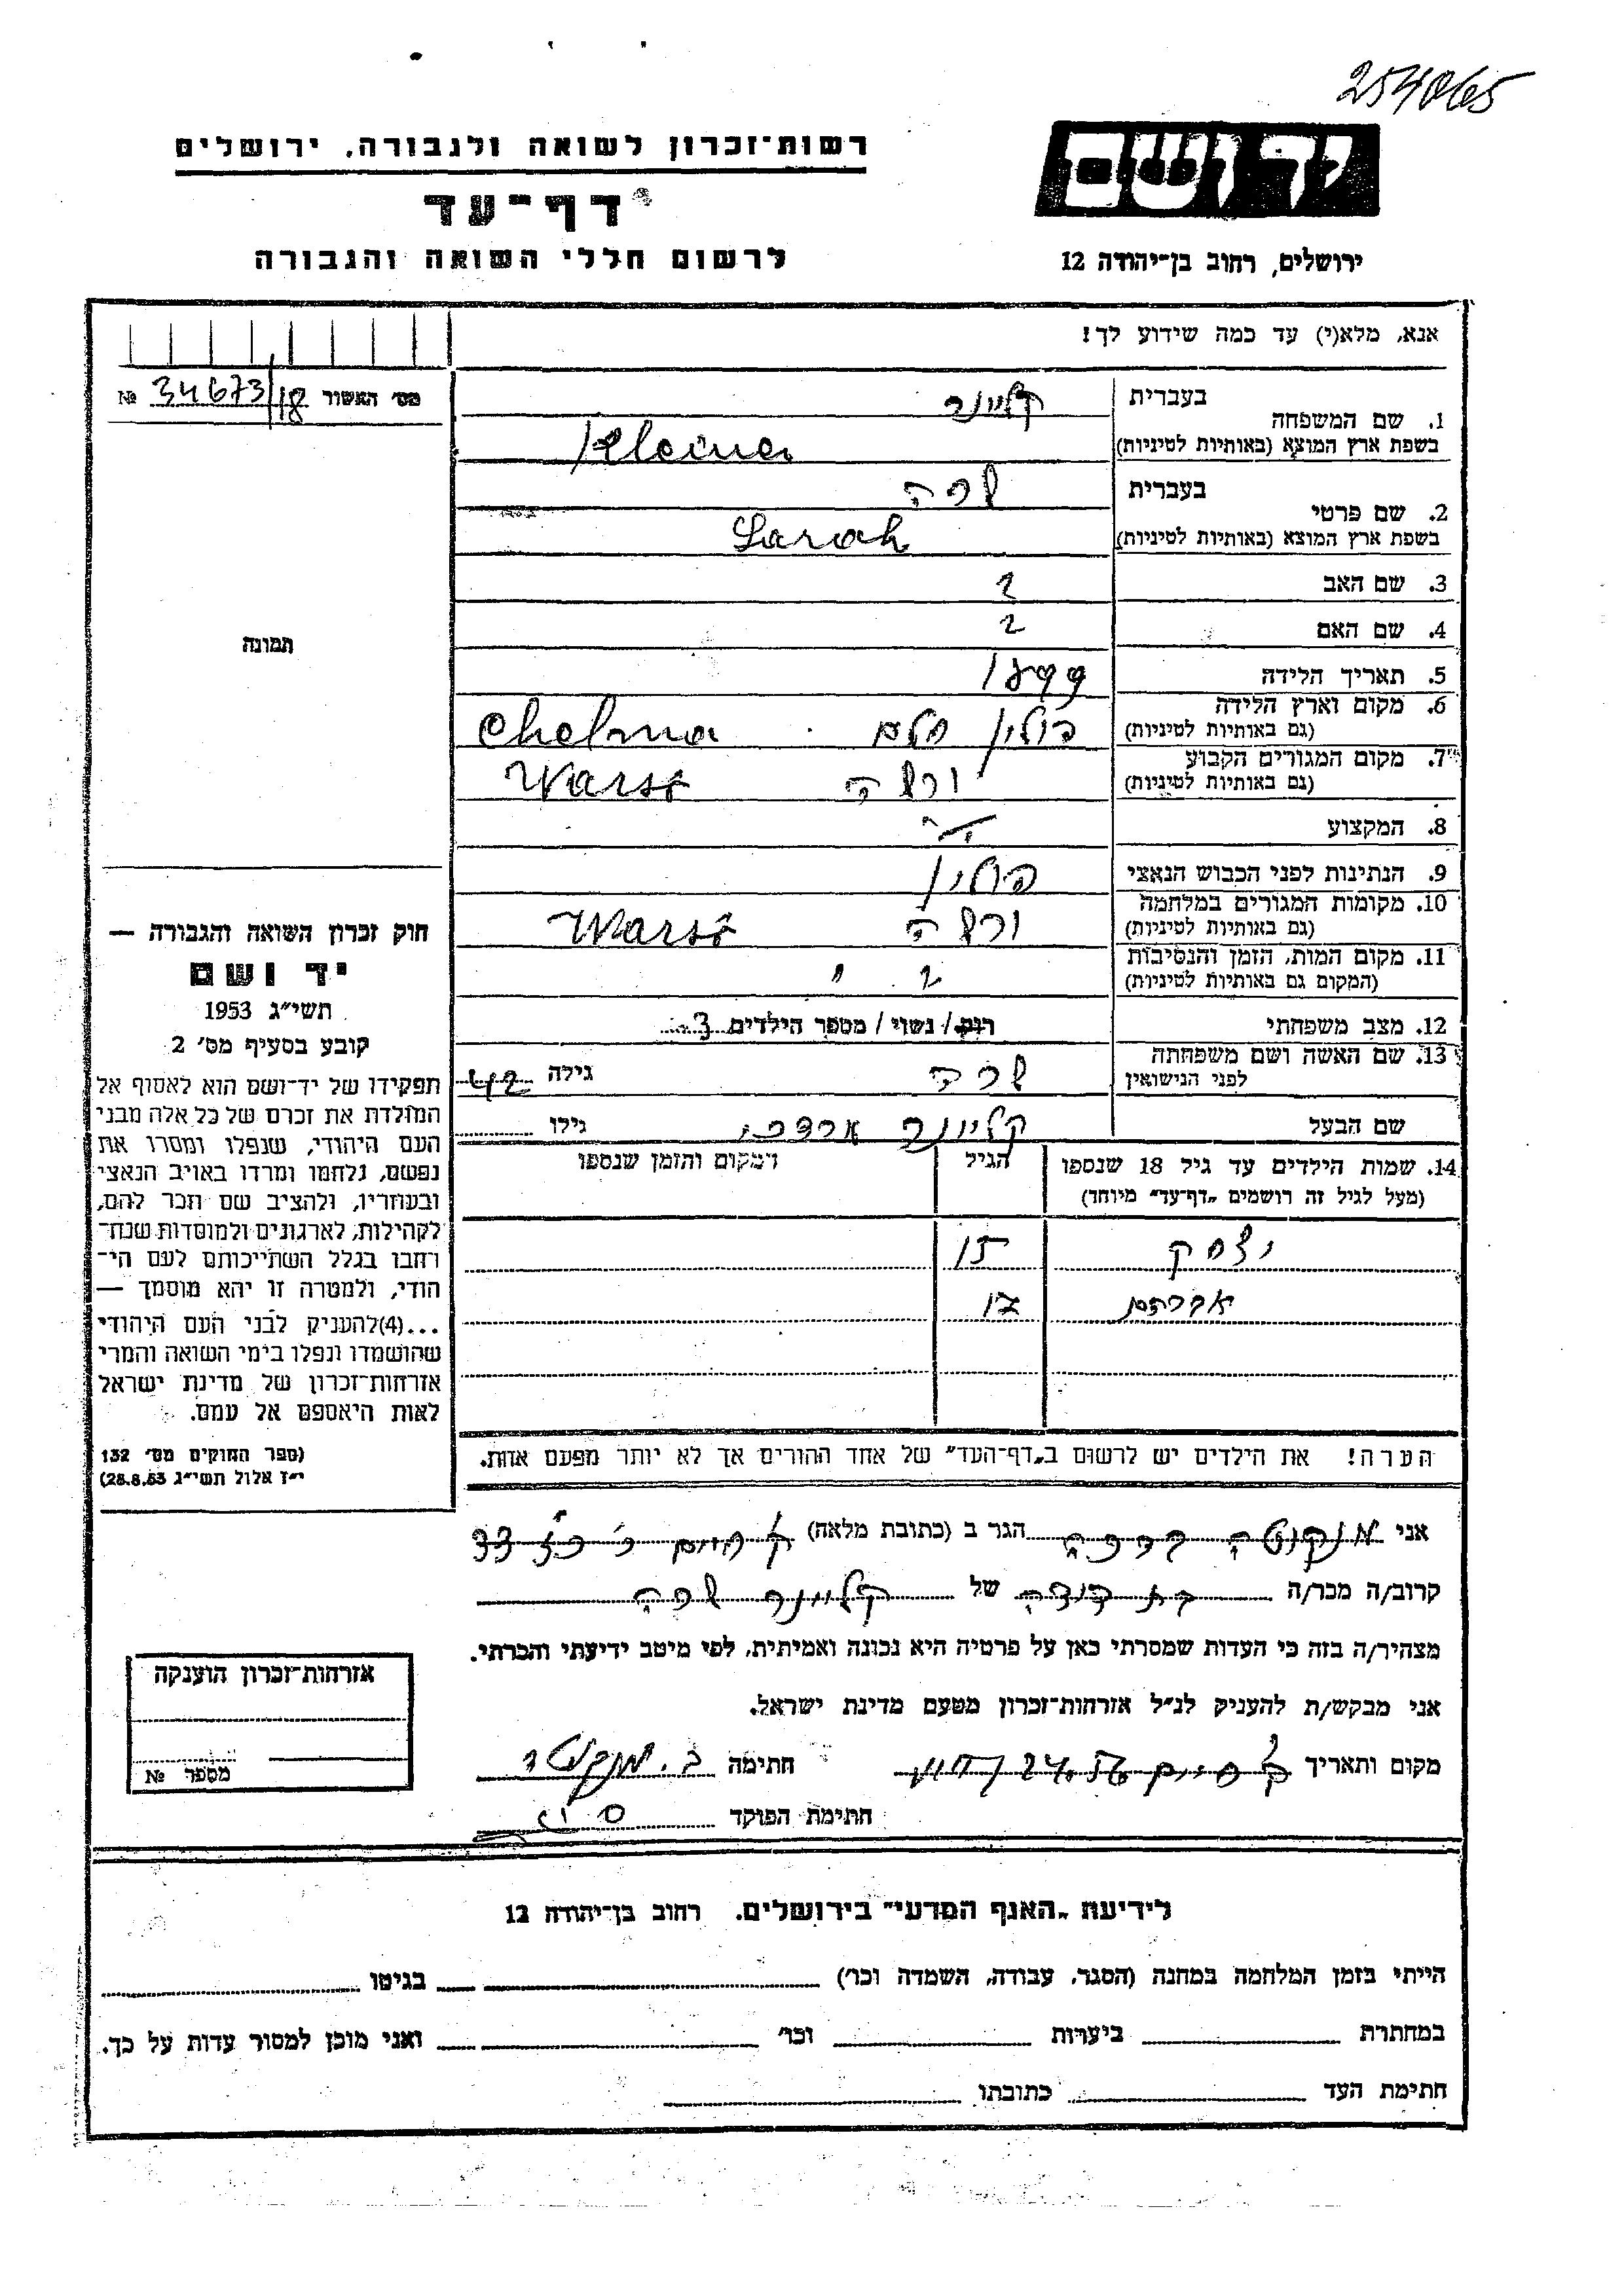 254065
יד ושם
רשות־זכרון לשואה ולגבורה, ירושלים
דף־עד
לרשום חללי השואה והגבורה
ירושלים, רחוב בן־יהודה 12
אנא, מלא(י) עד כמה שידוע לך!
מס׳ האשור 34673/18 №
1. שם המשפחה
בעברית קליינר
בשפת ארץ המוצא (באותיות לטיניות) Kleiner
2. שם פרטי
בעברית שרה
בשפת ארץ המוצא (באותיות לטיניות) Sarah
3. שם האב ?
4. שם האם ?
5. תאריך הלידה 1899
6. מקום וארץ הלידה פולין חלם . Chelma
(גם באותיות לטיניות)
7. מקום המגורים הקבוע ורשה Warsz
(גם באותיות לטיניות)
8. המקצוע
9. הנתינות לפני הכבוש הנאצי פולין
10. מקומות המגורים במלחמה ורשה Warsz
(גם באותיות לטיניות)
11. מקום המות, הזמן והנסיבות ?
(המקום גם באותיות לטיניות)
12. מצב משפחתי רווק / נשוי / מספר הילדים 3
13. שם האשה ושם משפחתה שרה גילה 42
לפני הנישואין
שם הבעל קליינר גילו
14. שמות הילדים עד גיל 18 שנספו הגיל המקום והזמן שנספו
(מעל לגיל זה רושמים „דף־עד״ מיוחד)
יצחק 15
אברהם 12
הערה! את הילדים יש לרשום ב„דף־העד״ של אחד ההורים אך לא יותר מפעם אחת.
תמונה
חוק זכרון השואה והגבורה —
יד ושם
תשי״ג 1953
קובע בסעיף מס׳ 2
תפקידו של יד־ושם הוא לאסוף אל
המולדת את זכרם של כל אלה מבני
העם היהודי, שנפלו ומסרו את
נפשם, נלחמו ומרדו באויב הנאצי
ובעוזריו, ולהציב שם וזכר להם,
לקהילות, לארגונים ולמוסדות שנח־
רבו בגלל השתייכותם לעם הי־
הודי, ולמטרה זו יהא מוסמך —
...(4)להעניק לבני העם היהודי
שהושמדו ונפלו בימי השואה והמרי
אזרחות־זכרון של מדינת ישראל
לאות היאספם אל עמם.
(ספר החוקים מס׳ 132
י״ז אלול תשי״ג 28.8.53)
אני הגר ב (כתובת מלאה)
קרוב/ה מכר/ה בת דודה של קליינר שרה
מצהיר/ה בזה כי העדות שמסרתי כאן על פרטיה היא נכונה ואמיתית, לפי מיטב ידיעתי והכרתי.
אני מבקש/ת להעניק לנ״ל אזרחות־זכרון מטעם מדינת ישראל.
מקום ותאריך חתימה
חתימת הפוקד
אזרחות־זכרון הוענקה
מספר №
לידיעת „האגף המדעי״ בירושלים. רחוב בן־יהודה 12
הייתי בזמן המלחמה במחנה (הסגר, עבודה, השמדה וכו׳) בגיטו
במחתרת ביערות וכו׳ ואני מוכן למסור עדות על כך.
חתימת העד כתובתו